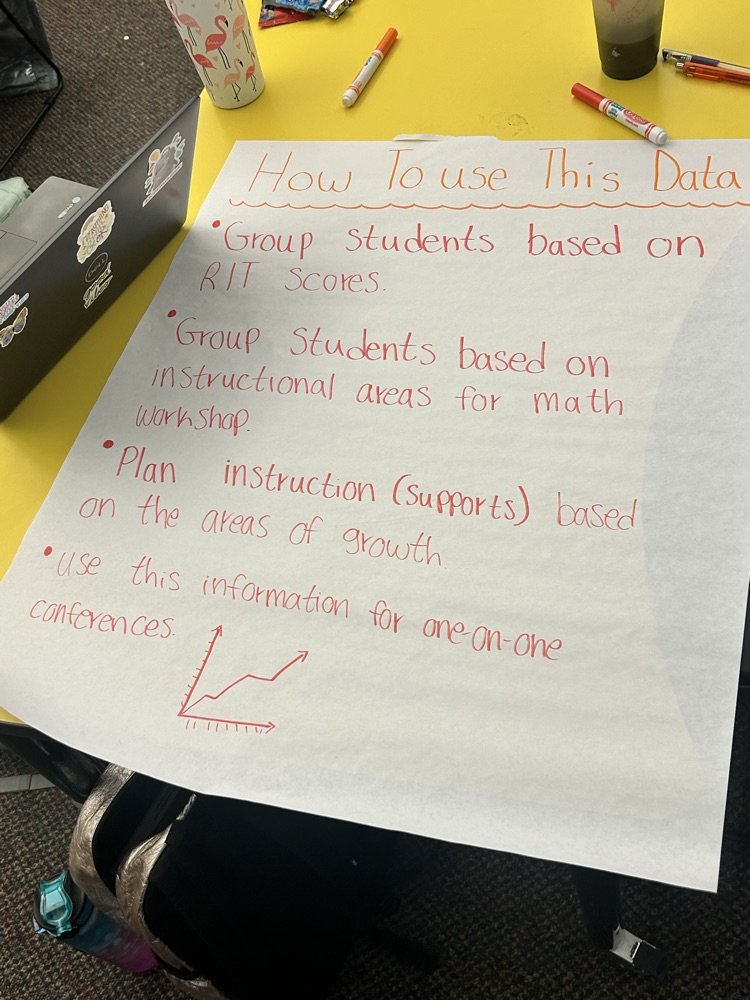 How To use This Data
• Group students based on
RIT scores.
• Group students based on
instructional areas for math
workshop.
• Plan instruction (supports) based
on the areas of growth
• use this information for one-on-one
conferences.